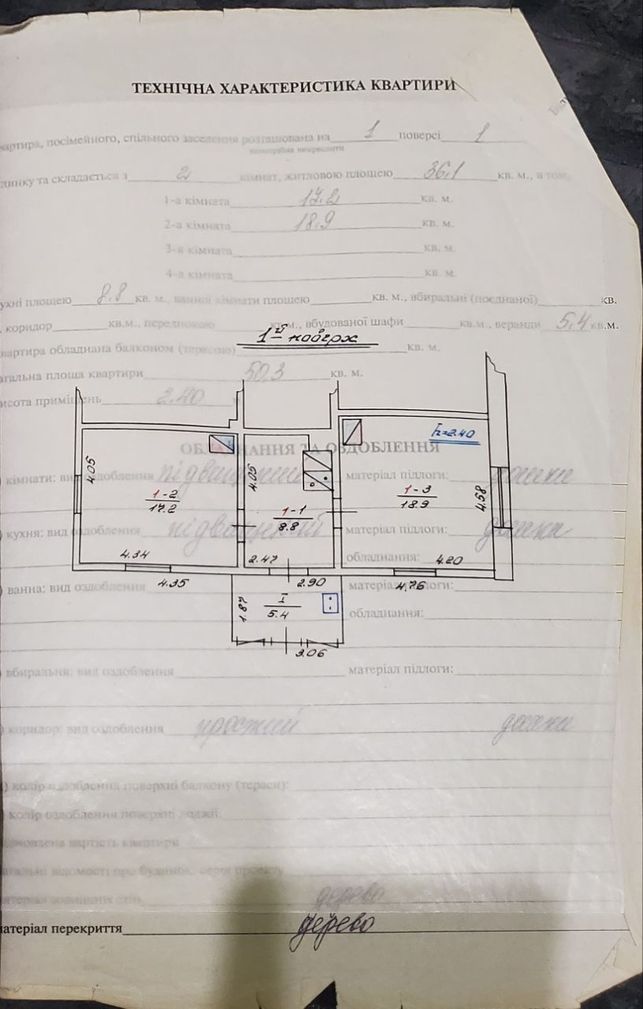 ТЕХНІЧНА ХАРАКТЕРИСТИКА КВАРТИРИ
квартира, посімейного, спільного заселення розташована на 1 поверсі 1
динку та складається з 2 кімнат, житловою площею 36.1 кв. м., в том
1-а кімната 17.2 кв. м.
2-а кімната 18.9 кв. м.
3-я кімната кв. м.
4-а кімната кв. м.
ухні площею 8.8 кв. м., ванної кімнати площею кв. м., вбиральні (поєднаної) кв.
коридор кв.м., передпокою кв.м., вбудованої шафи кв.м., веранди 5.4 кв.м.
1й поверх
квартира обладнана балконом (терасою) кв. м.
агальна площа квартири 50.3 кв. м.
исота приміщень 2.40
h=2.40
ОБЛАДНАННЯ ТА ОЗДОБЛЕННЯ
кімнати: вид оздоблення підвищений матеріал підлоги: дошки
4.05
4.05
1-2
17.2
1-1
8.8
1-3
18.9
4.58
) кухня: вид оздоблення підвищений матеріал підлоги: дошка
обладнання:
4.34
2.47
4.20
) ванна: вид оздоблення матеріал підлоги:
4.35
2.90
4.76
1.87
I
5.4
обладнання:
3.06
) вбиральня: вид оздоблення матеріал підлоги:
) коридор: вид оздоблення простий дошки
) колір оздоблення поверхні балкону (тераси):
) колір оздоблення поверхні лоджії:
агальні відомості про будинок, серія проекту
дерево
матеріал перекриття дерево